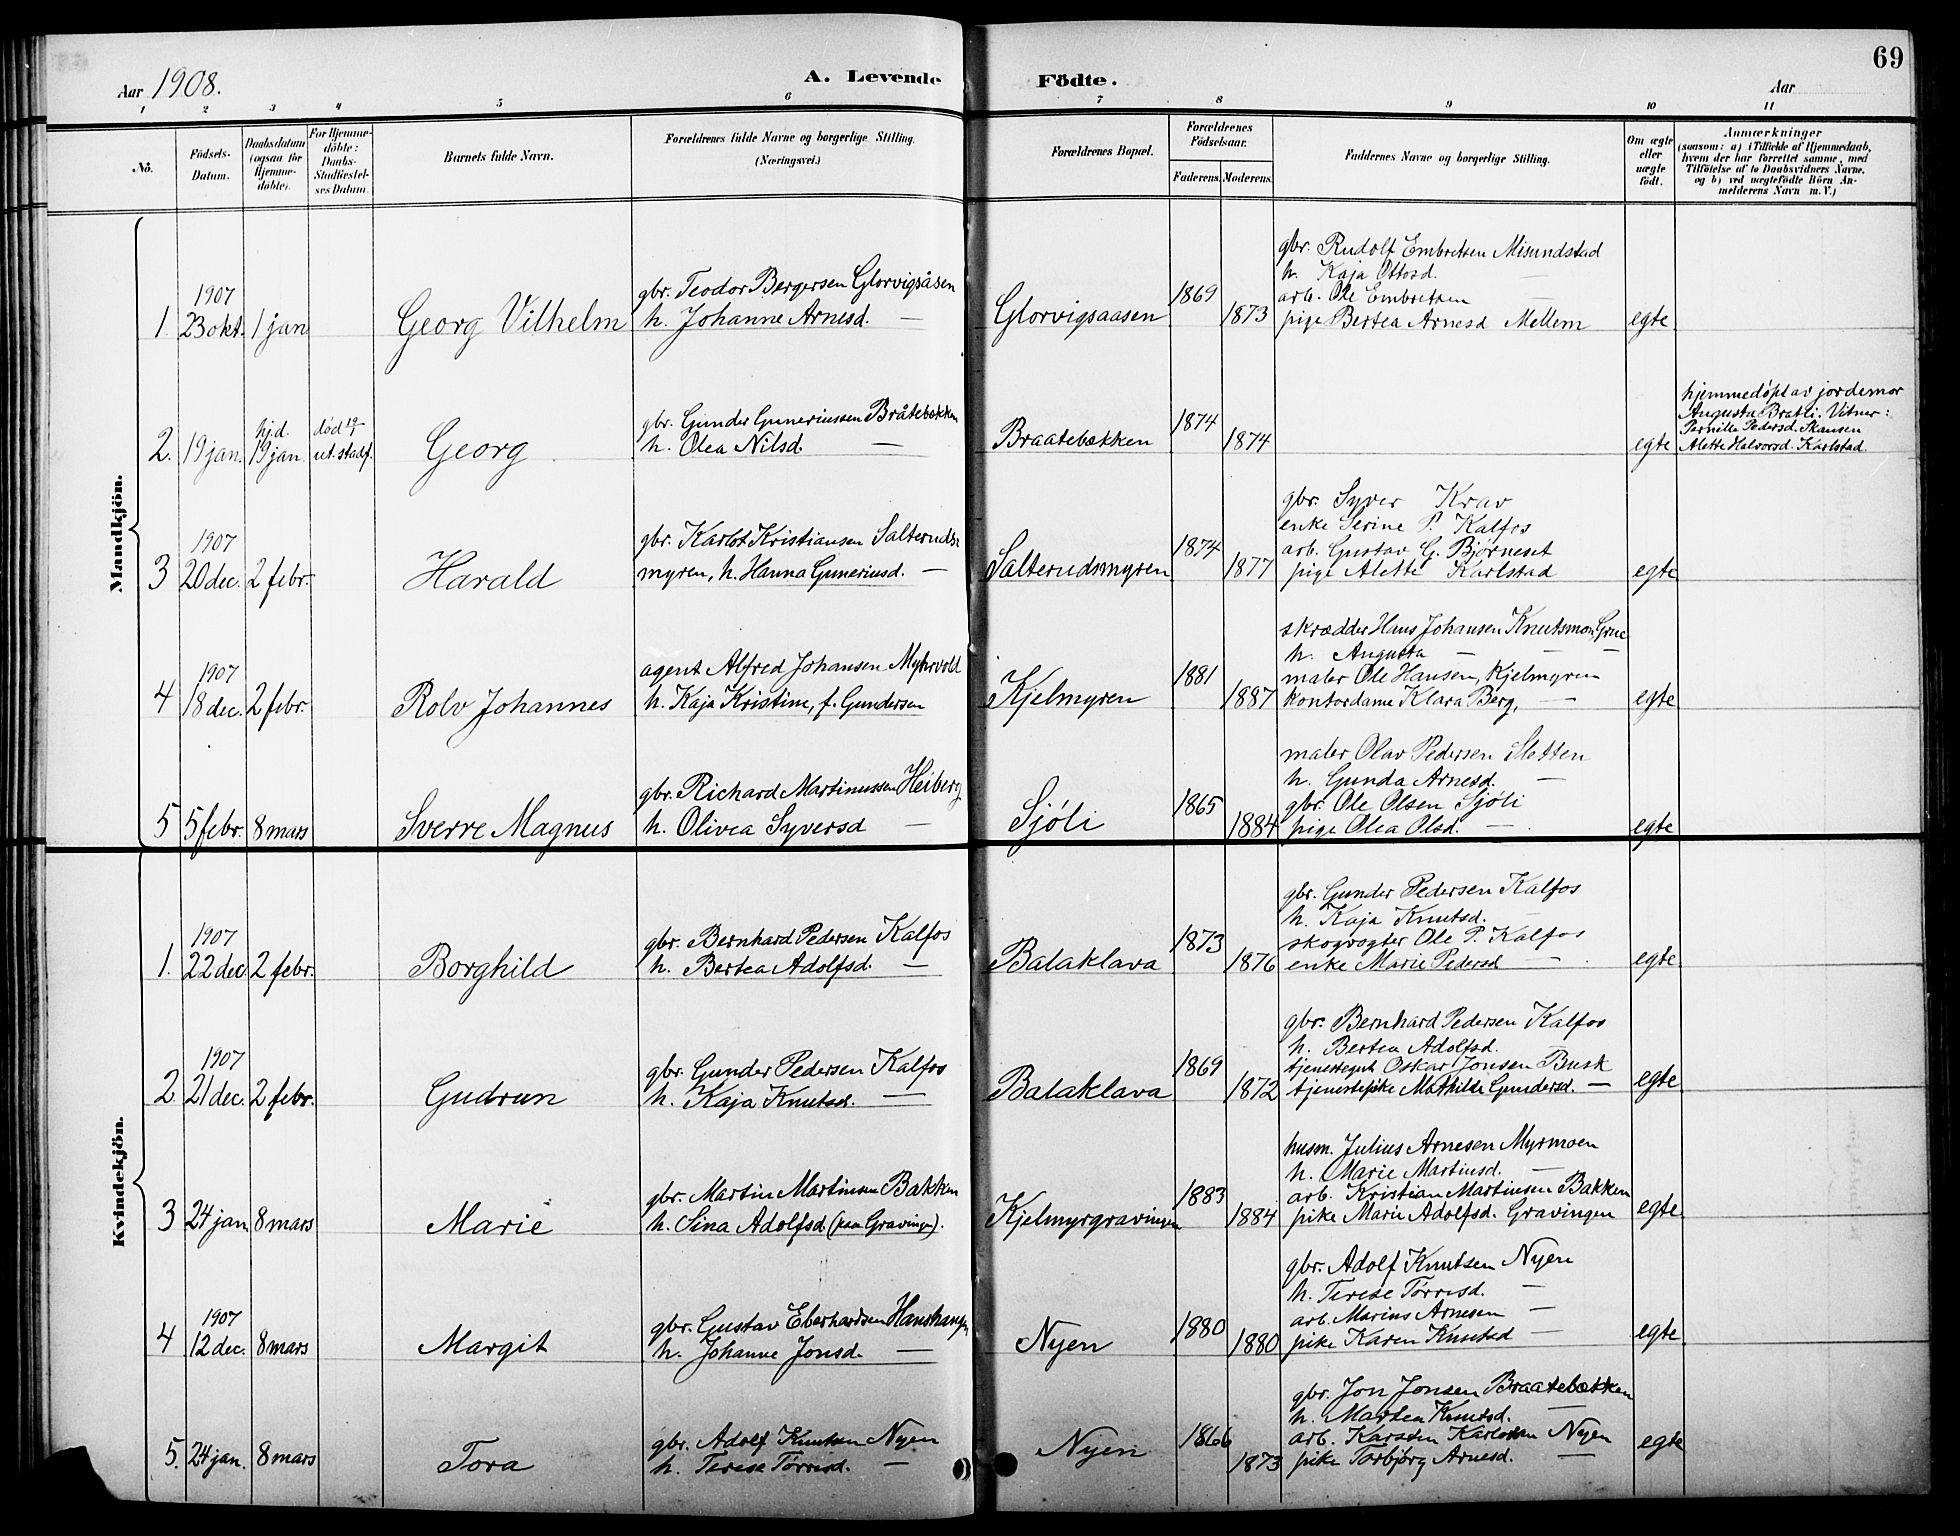 69
Aar 1908.
A. Levende Födte.
Aar
1 2 3 4 5 6 7 8 9 10 11
No.
Födsels-Datum.
Daabsdatum (ogsaa for Hjemmedöbte).
For Hjemmedöbte: Daabs-Stadfæstelses Datum.
Barnets fulde Navn.
Forældrenes fulde Navne og borgerlige Stilling. (Næringsvei.)
Forældrenes Bopæl.
Forældrenes Födselsaar.
Faderens. Moderens.
Faddernes Navne og borgerlige Stilling.
Om ægte eller uægte födt.
Anmærkninger
(saasom: a) i Tilfælde af Hjemmedaab,
hvem der har forrettet samme, med
Tilföielse af to Daabsvidners Navne.
og b) ved uægtefödte Börn An-
melderens Navn m. V.)
Mandkjön.
1. 1907 23 okt. 1 jan
Georg Vilhelm
gbr. Teodor Bergersen Glorvigsåsen
h. Johanne Arnesd. —
Glorvigsaasen
1869
1873
gbr. Rudolf Embretsen Misundstad
h. Kaja Ottosd. —
arb. Ole Embretsen —
pige Bertea Arnesd Mellem
egte
2. 19 jan. hj.d. 19 jan. død 19/1 ut. stadf.
Georg
gbr. Gunder Guneriussen Bråtebækken
h. Olea Nilsd. —
Braatebækken
1874
1874
egte
hjemmedøpt av jordemor
Augusta Bratli. Vitner:
Pernille Pedersd. Skansen
Alette Halvorsd. Karlstad.
3 1907 20 dec. 2 febr.
Harald
gbr. Karlot Kristiansen Salteruds-
myren, h. Hanna Guneriusd. —
Salterudsmyren
1874
1877
gbr. Syver Krav
enke Serine P. Kalfos
arb. Gustav G. Bjørneset
pige Alette Karlstad
egte
4 1907 18 dec. 2 febr.
Rolv Johannes
agent Alfred Johansen Myhrvold
h. Kaja Kristine, f. Gundersen
Kjelmyren
1881
1887
skrædder Hans Johansen Knutsmon, Grue
h. Augusta — — —
maler Ole Hansen, Kjelmyren
kontordame Klara Berg, —
egte
5 5 febr. 8 mars
Sverre Magnus
gbr. Richard Martinussen Heiberg
h. Olivea Syversd —
Sjøli
1865
1884
maler Olav Pedersen Sletten
h. Gunda Arnesd. —
gbr. Ole Olsen Sjøli
pige Olea Olsd. —
egte
Kvindekjön.
1. 1907 22 dec 2 febr.
Borghild
gbr. Bernhard Pedersen Kalfos
h. Bertea Adolfsd. —
Balaklava
1873
1876
gbr. Gunder Pedersen Kalfos
h. Kaja Knutsd. —
skogvogter Ole P. Kalfos
enke Marie Pedersd —
egte
2. 1907 21 dec. 2 febr.
Gudrun
gbr. Gunder Pedersen Kalfos
h. Kaja Knutsd. —
Balaklava
1869
1872
gbr. Bernhard Pedersen Kalfos
h. Bertea Adolfsd. —
tjenestegut Oskar Jonsen Busk
tjenestepike Mathilde Gundersd. —
egte
3 24 jan. 8 mars
Marie
gbr. Martin Martinsen Bakken
h. Sina Adolfsd (paa Gravingen).
Kjelmyrgravingen
1883
1884
husm. Julius Arnesen Myrmoen
h. Marie Martinsd. —
arb. Kristian Martinsen Bakken
pike Marie Adolfsd. Gravingen
egte
4 1907 12 dec. 8 mars
Margit
gbr. Gustav Eberhardsen Hanshaugen
h. Johanne Jonsd. —
Nyen
1880
1880
gbr. Adolf Knutsen Nyen
h. Terese Tørrisd. —
arb. Marius Arnesen —
pike Karen Knutsd —
egte
5. 24 jan. 8 mars
Tora
gbr. Adolf Knutsen Nyen
h. Terese Tørrisd. —
Nyen
1866
1873
gbr. Jon Jonsen Braatebækken
h. Martea Knutsd. —
arb. Karsten Karlsen Nyen
pike Torbjørg Arnesd. —
egte